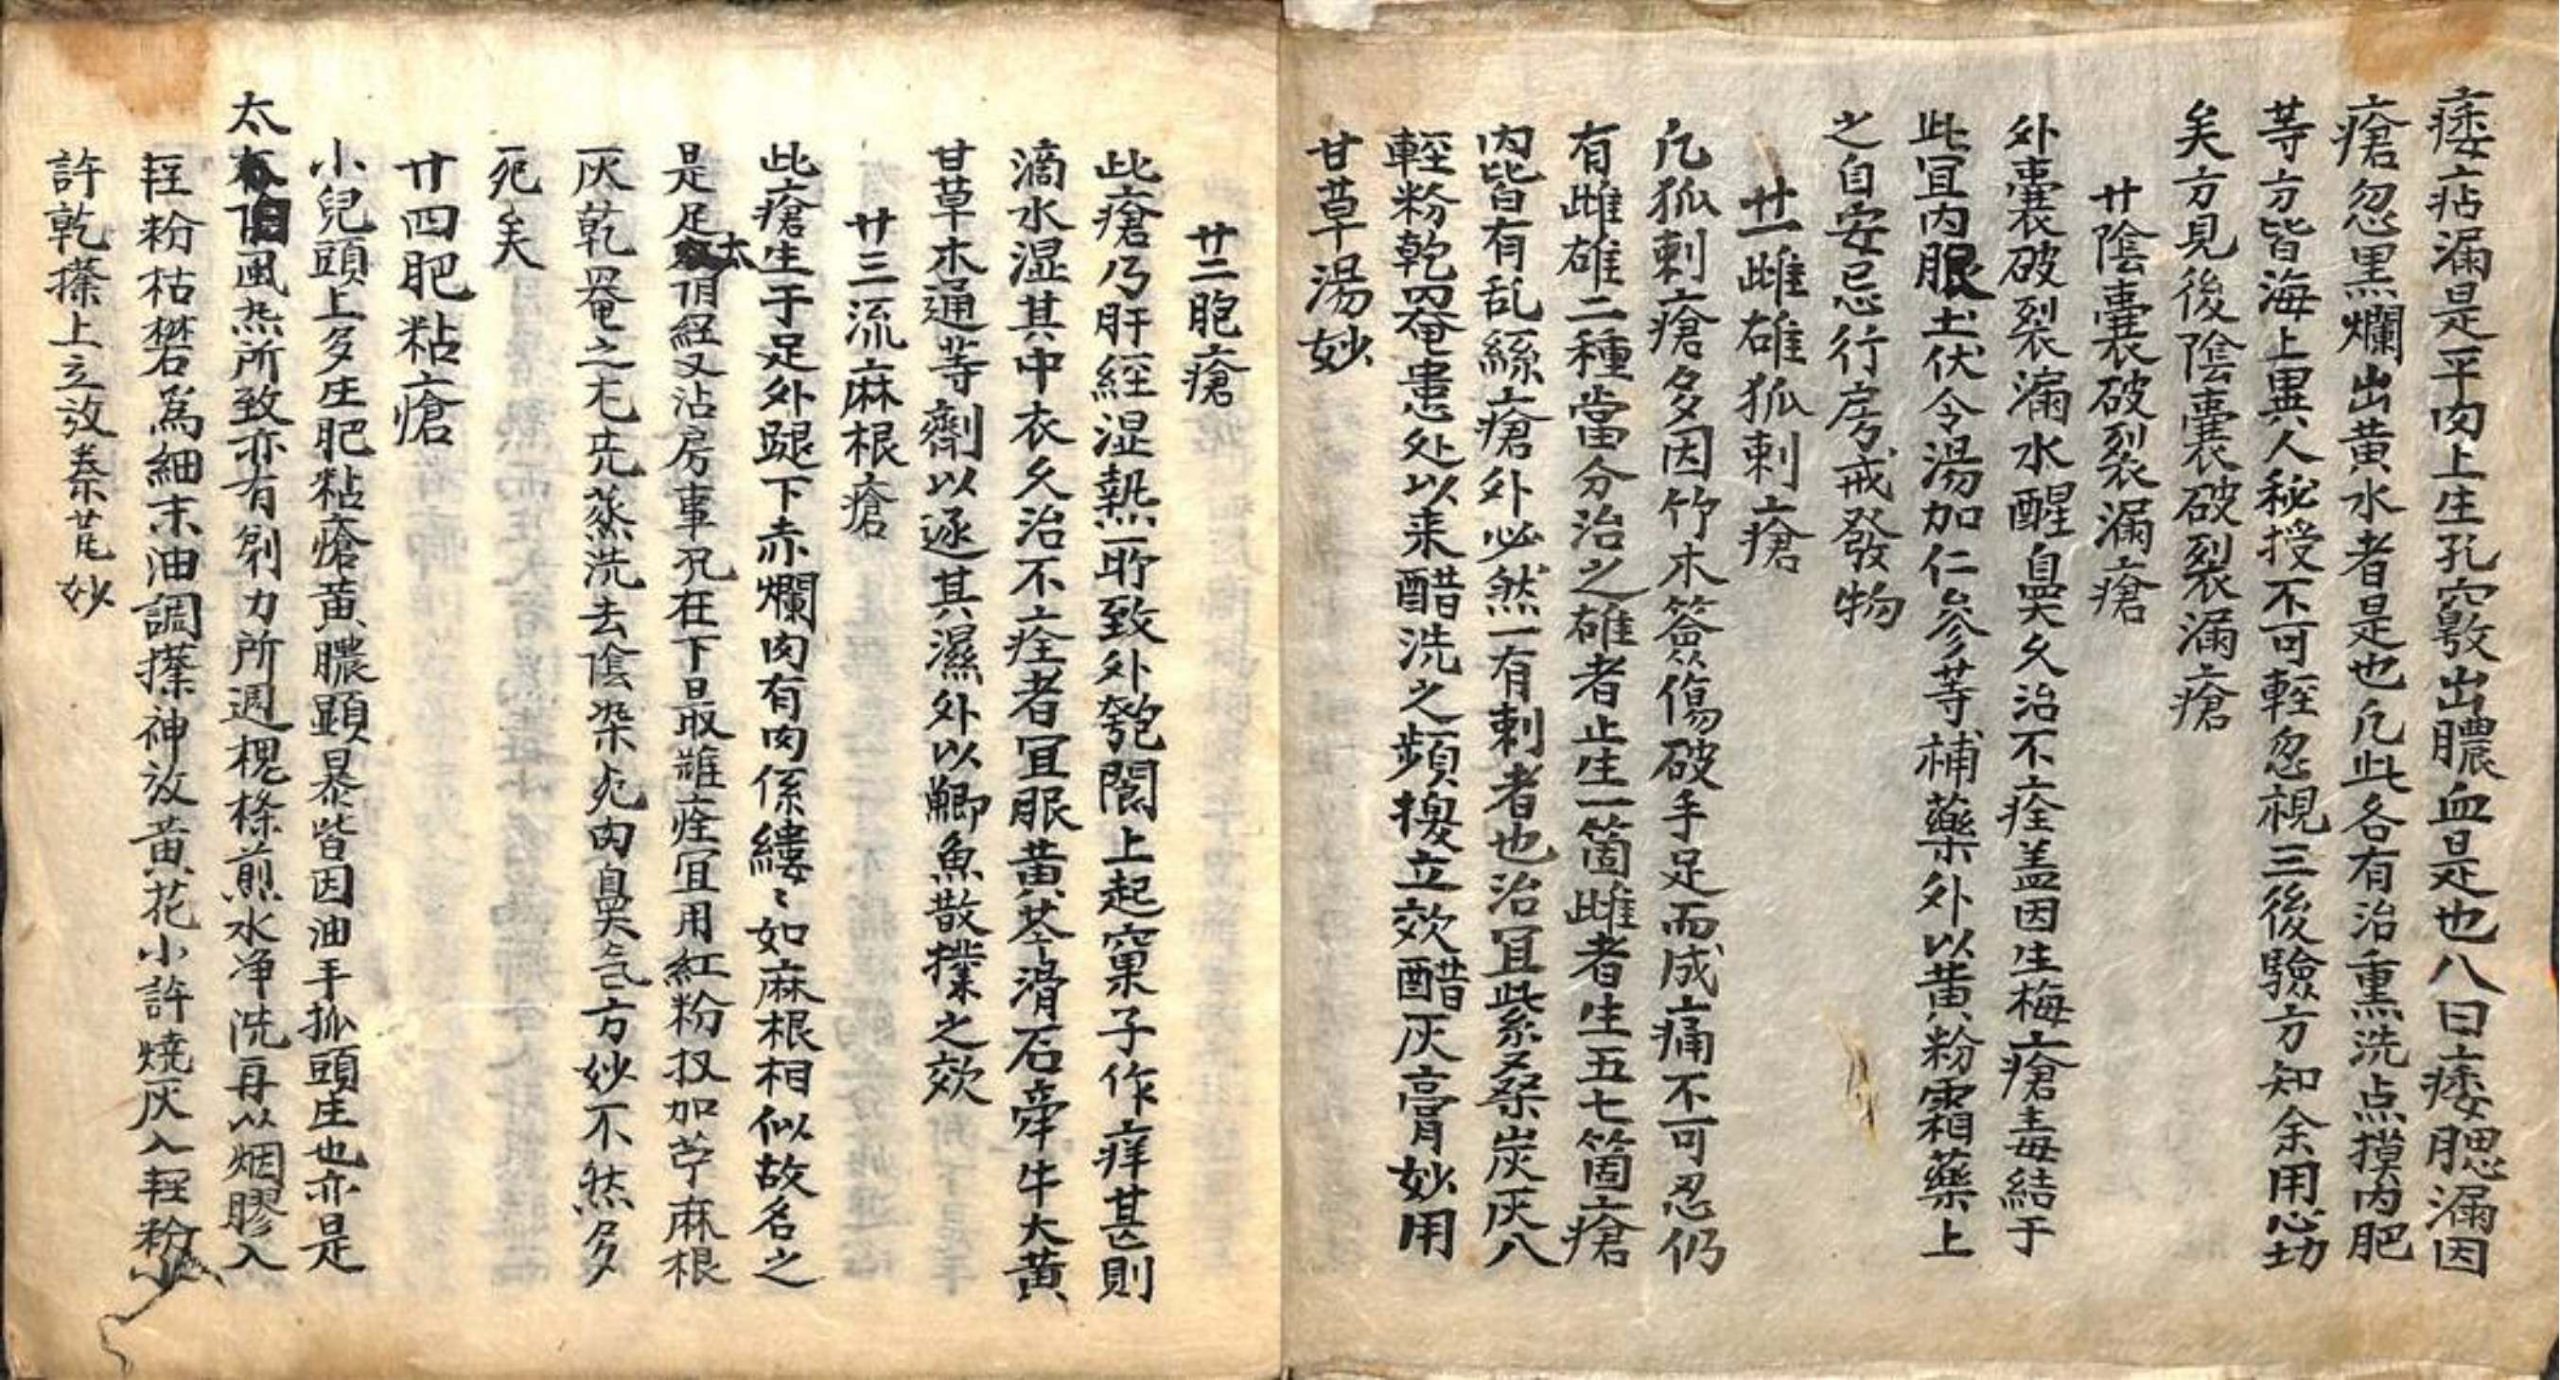 痿痁漏是平肉上生孔穴竅出膿血是也八曰痿腮漏因
瘡忽黑爛出黄水者是也凢此各有治熏洗点摸内肥
等方皆海上異人秘授不可輕忽視三後驗方知余用心切
矣方見後陰囊破裂漏瘡
廿陰囊破裂漏瘡
外囊破裂漏水醒臭久治不痊盖因生梅瘡毒結于
此冝内服土伏令湯加仁參等補藥外以黄粉霜藥上
之自安忌行房戒發物
廿一雌雄狐刺瘡
凢狐刺瘡多因竹木簽傷破手足而成痛不可忍仍
有雌雄二種當分治之雄者止生一箇雌者生五七箇瘡
内皆有乱絲瘡外必然一有刺者也治冝柴桑炭灰八
輕粉乾罨患处以来醋洗之頻換立效醋灰膏妙用
甘草湯妙
廿二胞瘡
此瘡乃肝經湿熱所致外胞閣上起窠子作痒甚則
滴水湿其中衣久治不痊者冝服黄芩滑石牵牛大黄
甘草木通等劑以逐其濕外以鯽魚散撲之效
廿三流麻根瘡
此瘡生于足外腿下赤爛肉有肉係縷〻如麻根相似故名之
是足太陽經又沾房事况在下最難痊冝用紅粉扠加苧麻根
灰乾罨之尢先蒸洗去陰染死肉臭気方妙不然多
死矣
廿四肥粘瘡
小兒頭上多生肥粘瘡黄膿顕暴皆因油手抓頭生也亦是
太陽風热所致亦有剃刀所過槐條煎水净洗再以烟膠入
輕粉枯礬爲細末油調搽神效黄花小許燒灰入輕粉少
許乾搽上立效秦芃妙